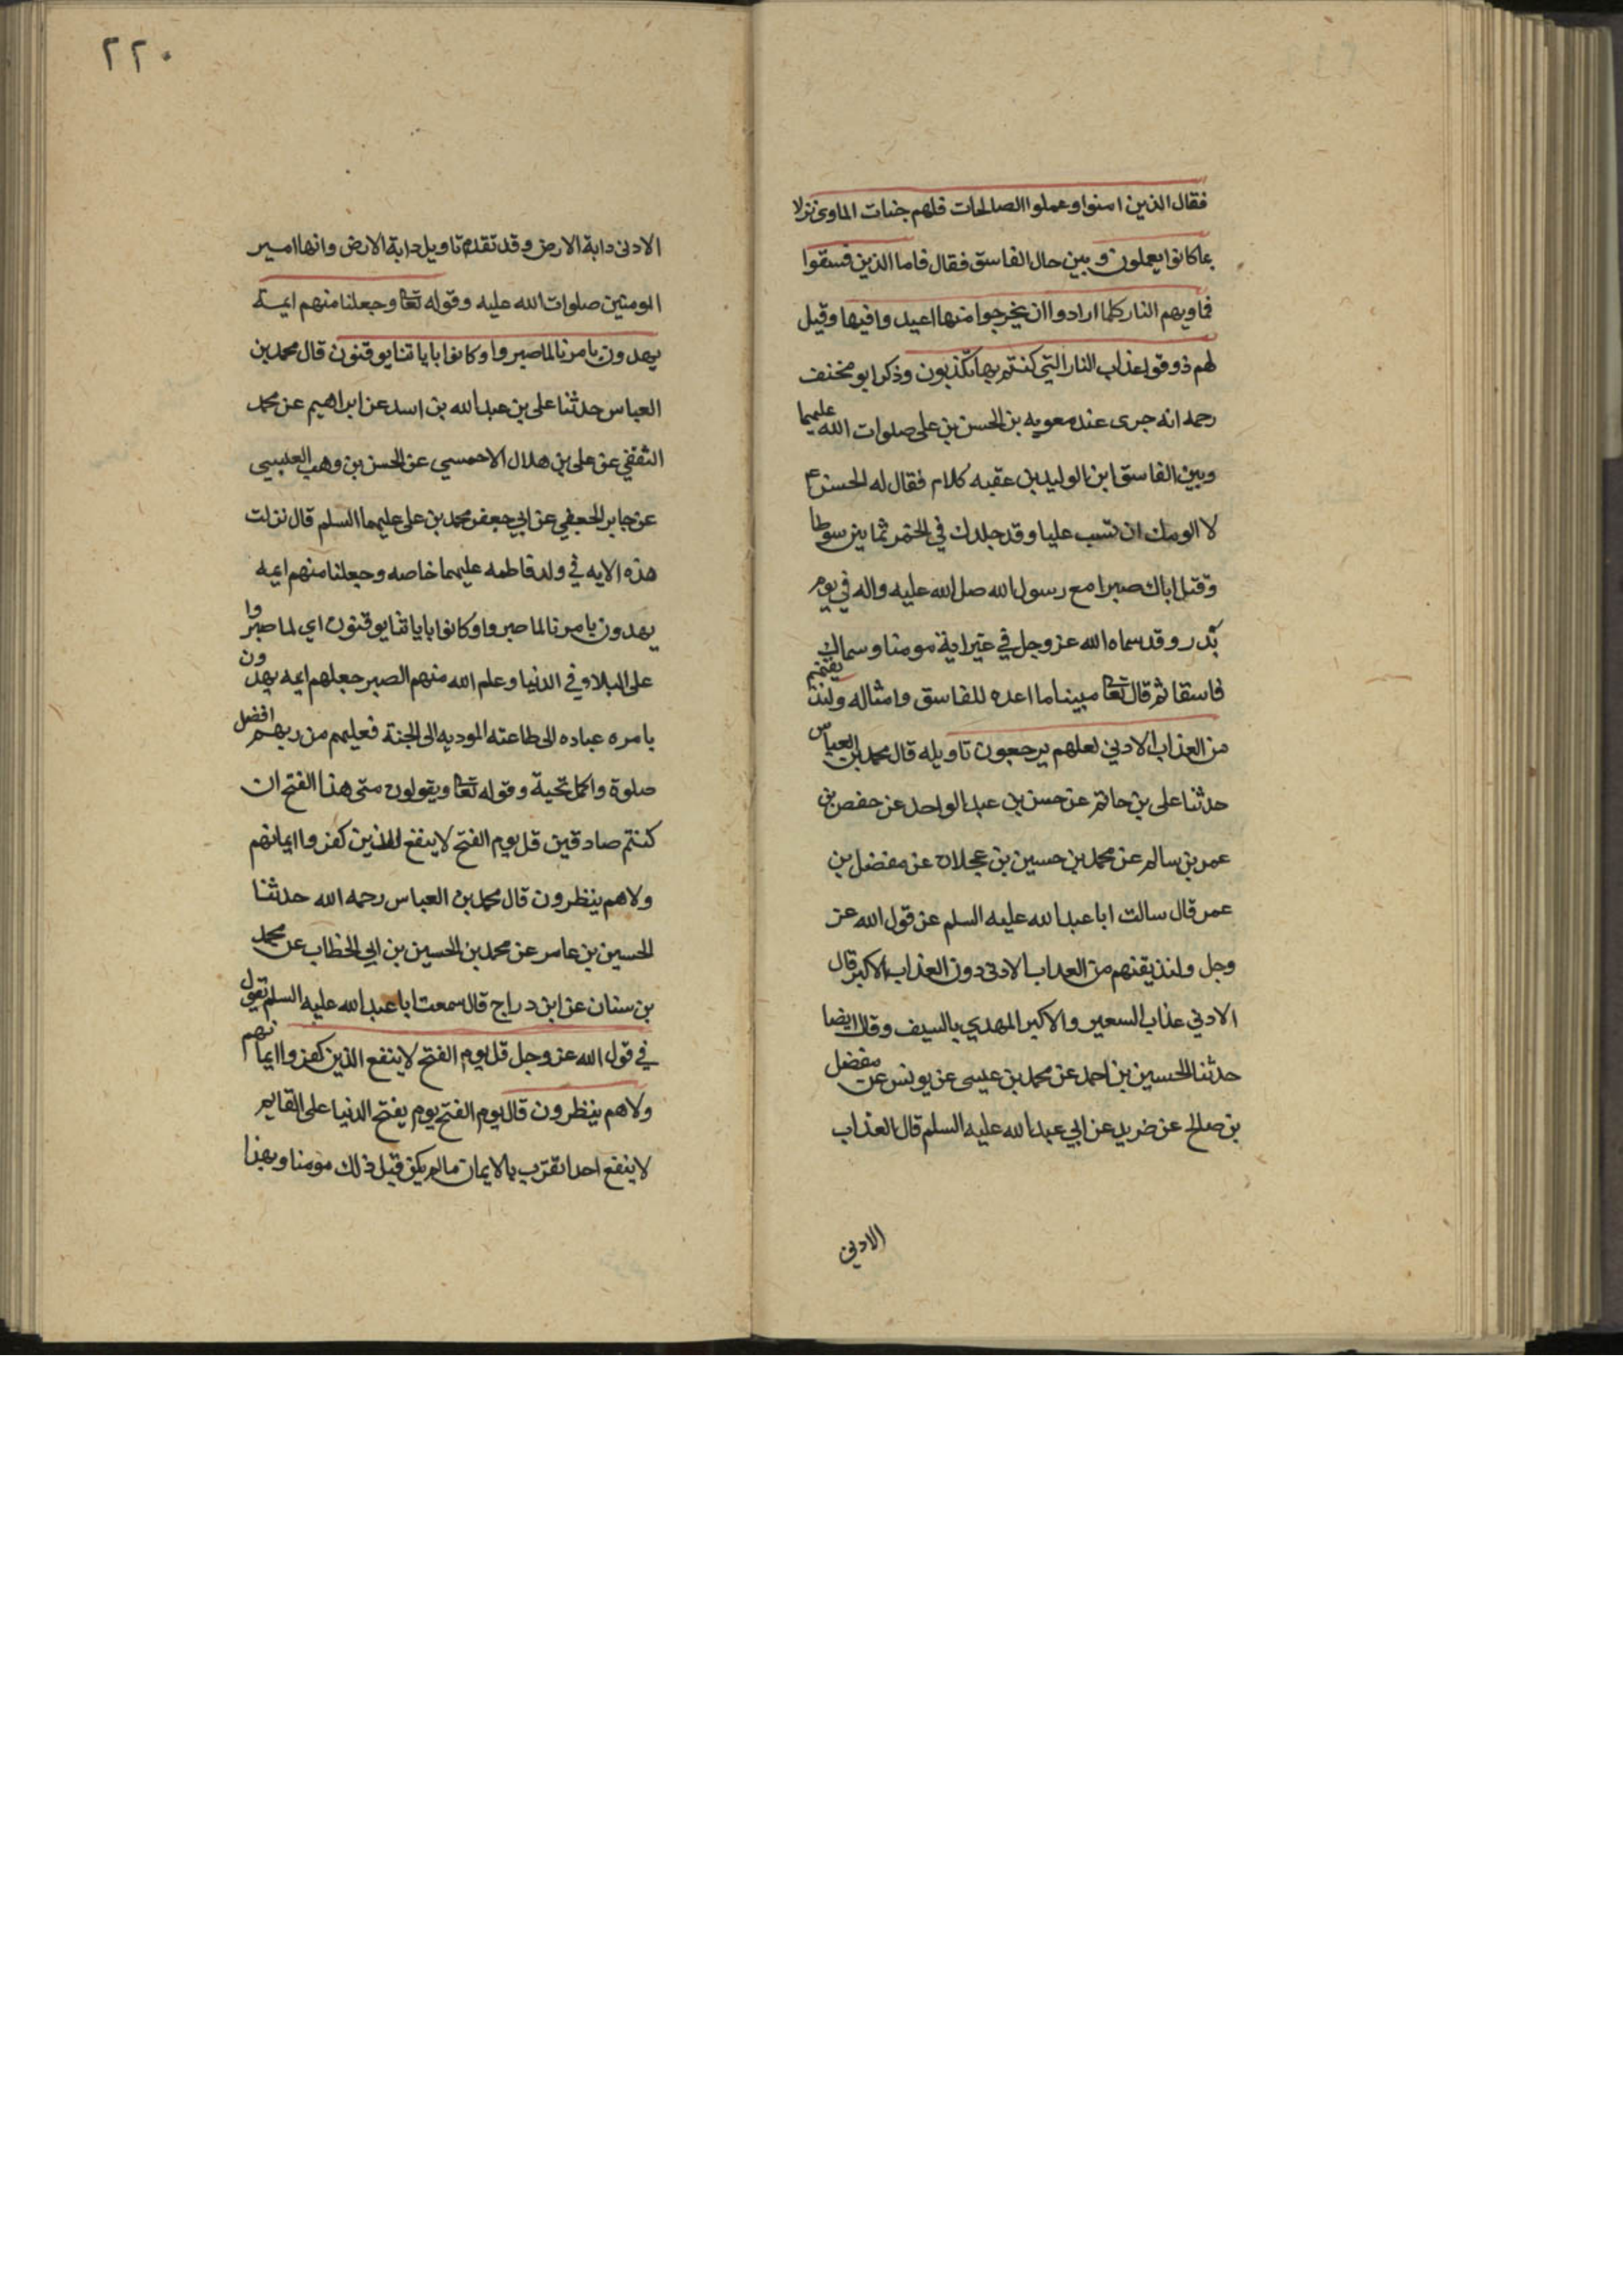 فقال الذين امنوا وعملوا الصالحات فلهم جنات الماوى نزلا
بما كانوا يعملون وبين حال الفاسق فقال فاما الذين فسقوا
فماويهم النار كلما ارادوا ان يخرجوا منها اعيدوا فيها وقيل
لهم ذوقوا عذاب النار التي كنتم بها تكذبون وذكر ابو مخنف
رحمه انه جرى عند معويه بن الحسن بن على صلوات الله عليهما
وبين الفاسق ابن الوليد بن عقبه كلام فقال له الحسن ع
لا الومك ان تسب عليا وقد جلدك في الخمر ثمانين سوطا
وقتل اباك صبرا مع رسول الله صل الله عليه واله في يوم
بدر وقد سماه الله عز وجل في غير اية مومنا وسماك
فاسقا ثم قال تعا مبينا ما اعده للفاسق وامثاله ولنذيقنهم
من العذاب الادني لعلهم يرجعون تاويله قال محمد بن العباس
حدثنا على بن حاتم عن حسن بن عبد الواحد عن حفص بن
عمر بن سالم عن محمد بن حسين بن عجلان عن مفضل بن
عمر قال سالت ابا عبد الله عليه السلم عن قول الله عز
وجل ولنذيقنهم من العداب الادنى دون العذاب الاكبر قال
الادني عذاب السعير والاكبر المهدي بالسيف وقال ايضا
حدثنا الحسين بن احمد عن محمد بن عيسى عن يونس عن مفضل
بن صالح عن ضريد عن ابي عبد الله عليه السلم قال العذاب
الادني
٢٢٠
الادنى دابة الارض وقد تقدم تاويل دابة الارض وانها امير
المومنين صلوات الله عليه وقوله تعا وجعلنا منهم ايمة
يهدون بامرنا لما صبروا وكانوا باياتنا يوقنون قال محمد بن
العباس حدثنا على بن عبد الله بن اسد عن ابراهيم عن محمد
الثقفي عن على بن هلال الاحمسي عن الحسن بن وهب العبسي
عن جابر الجعفي عن ابي جعفر محمد بن على عليهما السلم قال نزلت
هذه الايه في ولد فاطمه عليهما خاصه وجعلنا منهم ايمه
يهدون بامرنا لما صبروا وكانوا باياتنا يوقنون اي لما صبروا
على البلاء في الدنيا وعلم الله منهم الصبر جعلهم ايمه يهدون
بامره عباده الى طاعته الموديه الى الجنة فعليهم من ربهم افضل
صلوة واكمل تحية وقوله تعا ويقولون متى هذا الفتح ان
كنتم صادقين قل يوم الفتح لا ينفع الذين كفروا ايمانهم
ولا هم ينظرون قال محمد بن العباس رحمه الله حدثنا
الحسين بن عامر عن محمد بن الحسين بن ابي الخطاب عن محمد
بن سنان عن ابن دراج قال سمعت ابا عبد الله عليه السلم تقول
في قول الله عز وجل قل يوم الفتح لا ينفع الذين كفروا ايمانهم
ولا هم ينظرون قال يوم الفتح يوم يفتح الدنيا على القايم
لا ينفع احدا تقرب بالايمان ما لم يكن قبل ذلك مومنا وبهذا